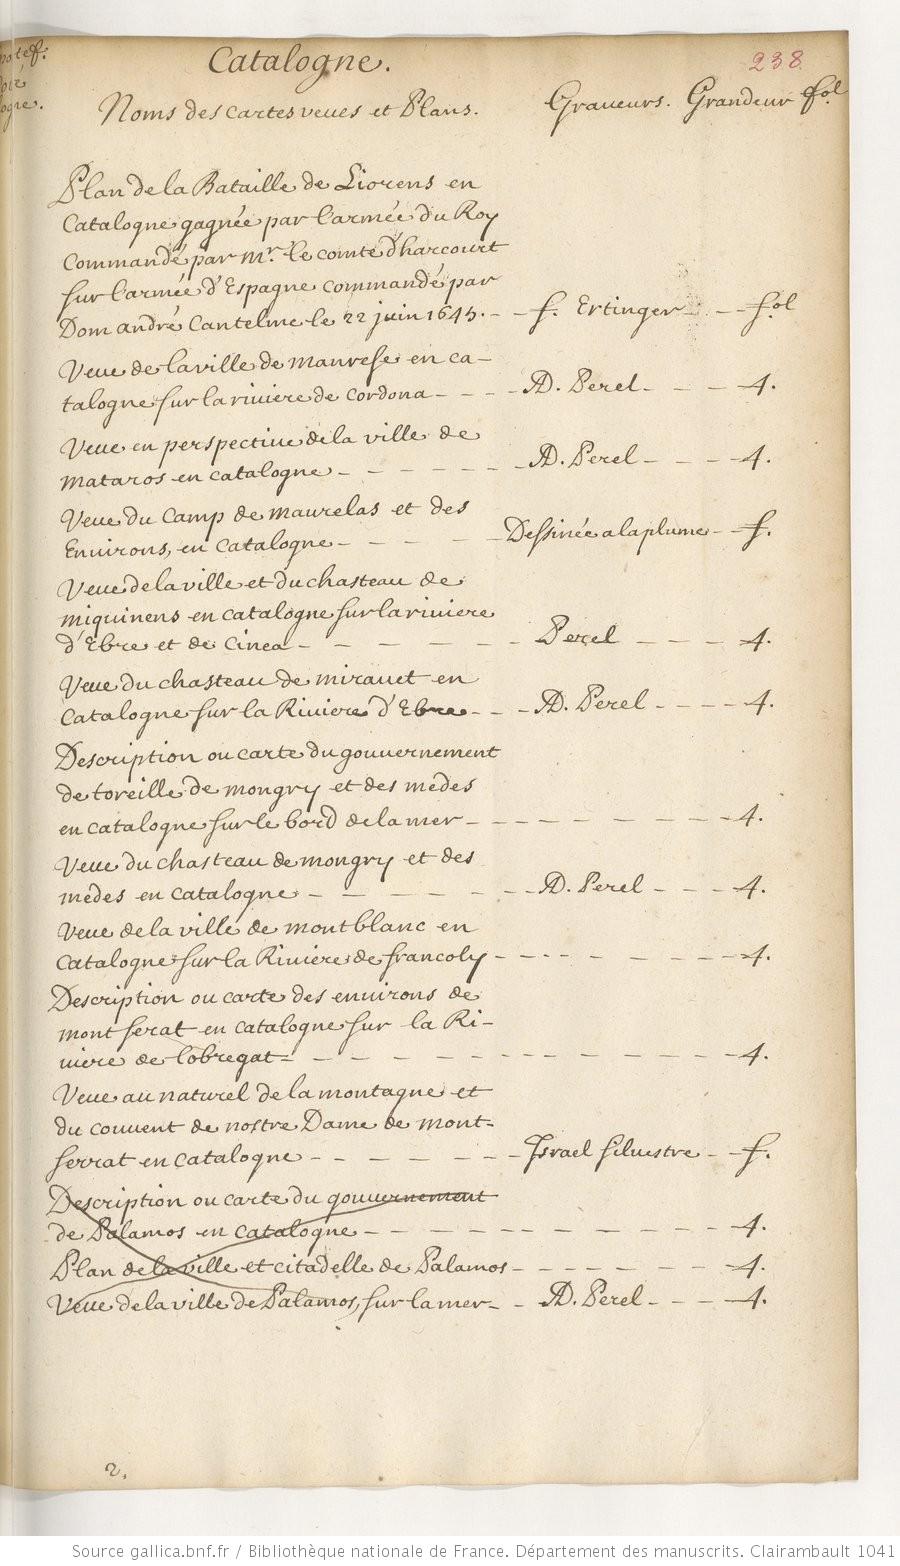 Catalogne. 238
Noms des cartes veues et Plans. Graveurs. Grandeur fol
Plan de la Bataille de Liorens en
Catalogne gagnée par l'armée du Roy
Commandé par Mr. le comte d'harcourt
sur l'armée d'Espagne commandé par
Dom andré Cantelme le 22 juin 1645. - - f. Ertinger - - fol
Veue de la ville de Manrese en ca-
talogne sur la riviere de Cordona - - - - AD. Perel - - - 4.
Veue en perspective de la ville de
Mataros en catalogne - - - - - - - AD. Perel - - - 4.
Veue du Camp de Maurelas et des
Environs, en Catalogne - - - - - Dessinée a la plume - - f.
Veue de la ville et du chasteau de
Miquinens en catalogne sur la riviere
d'Ebre et de Cinca - - - - - - Perel - - - - 4.
Veue du chasteau de Miravet en
Catalogne sur la Riviere d'Ebre - - - AD. Perel - - - - 4.
Description ou carte du gouvernement
de toreille de mongry et des medes
en catalogne sur le bord de la mer - - - - - - - - 4.
Veue du chasteau de mongry et des
medes en catalogne - - - - - - - AD. Perel - - - 4.
Veue de la ville de montblanc en
Catalogne sur la Riviere de francoly - - - - - - - - 4.
Description ou carte des environs de
mont serat en catalogne sur la Ri-
viere de lobregat - - - - - - - - - - - - 4.
Veue au naturel de la montagne et
du couvent de nostre Dame de mont-
serrat en catalogne - - - - - - Israel silvestre - - f.
Description ou carte du gouvernement
de Palamos en catalogne - - - - - - - - - - 4.
Plan de la ville et citadelle de Palamos - - - - - - 4.
Veue de la ville de Palamos, sur la mer - - AD. Perel - - - 4.
2.
Source gallica.bnf.fr / Bibliothèque nationale de France. Département des manuscrits. Clairambault 1041